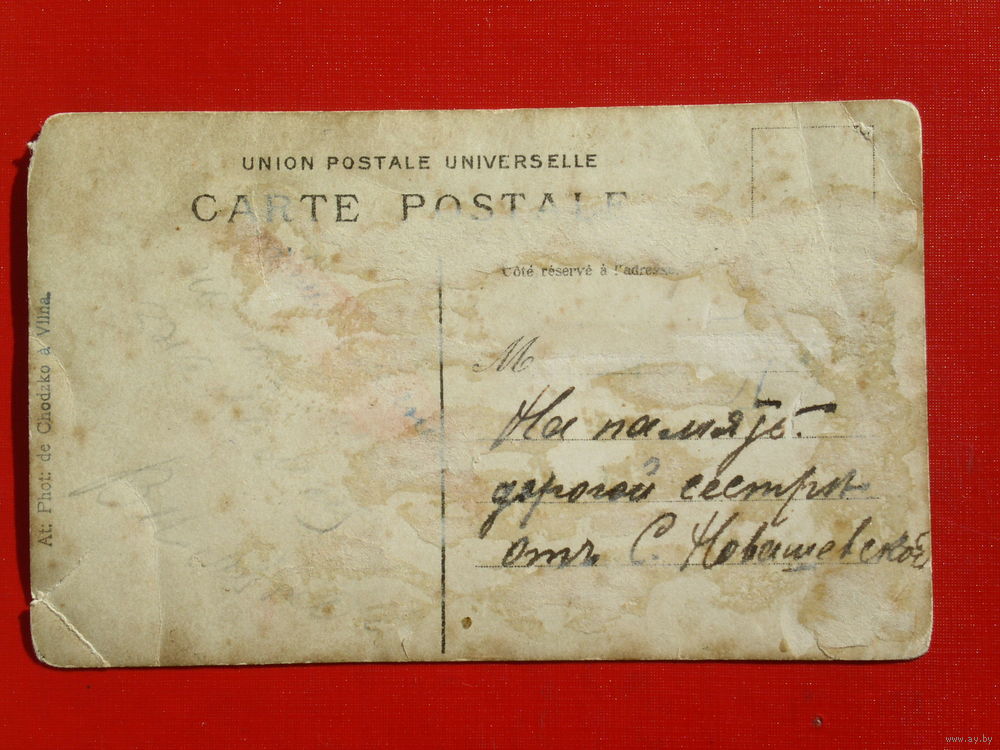 UNION POSTALE UNIVERSELLE
CARTE POSTALE
Côté réservé à l'adresse.
M
На память
дорогой сестрѣ
отъ С. Новашевской
At: Phot: de Chodzko à Vilna.
www.ay.by